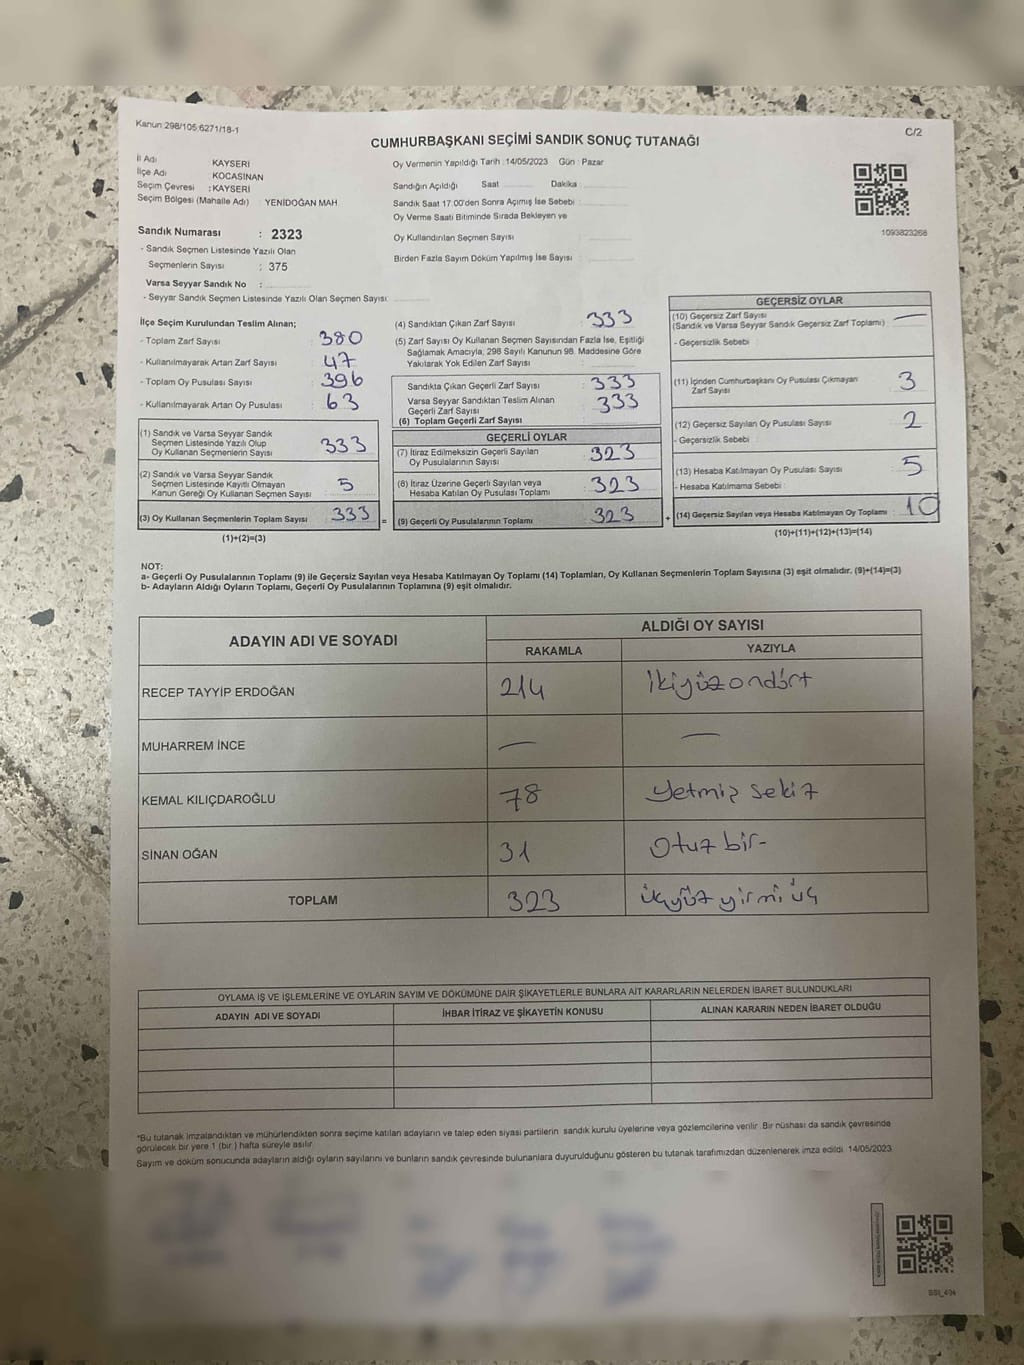 Kanun:298/105;6271/18-1
C/2
CUMHURBAŞKANI SEÇİMİ SANDIK SONUÇ TUTANAĞI
İl Adı KAYSERİ
İlçe Adı KOCASİNAN
Seçim Çevresi : KAYSERİ
Seçim Bölgesi (Mahalle Adı) : YENİDOĞAN MAH
Sandık Numarası : 2323
- Sandık Seçmen Listesinde Yazılı Olan
Seçmenlerin Sayısı : 375
Varsa Seyyar Sandık No :
- Seyyar Sandık Seçmen Listesinde Yazılı Olan Seçmen Sayısı:
Oy Vermenin Yapıldığı Tarih :14/05/2023 Gün : Pazar
Sandığın Açıldığı Saat Dakika :
Sandık Saat 17.00'den Sonra Açımış İse Sebebi :
Oy Verme Saati Bitiminde Sırada Bekleyen ve
Oy Kullandırılan Seçmen Sayısı
Birden Fazla Sayım Döküm Yapılmış İse Sayısı :
1093823268
İlçe Seçim Kurulundan Teslim Alınan;
- Toplam Zarf Sayısı : 380
- Kullanılmayarak Artan Zarf Sayısı : 47
- Toplam Oy Pusulası Sayısı : 396
- Kullanılmayarak Artan Oy Pusulası : 63
(1) Sandık ve Varsa Seyyar Sandık
Seçmen Listesinde Yazılı Olup
Oy Kullanan Seçmenlerin Sayısı : 333
(2) Sandık ve Varsa Seyyar Sandık
Seçmen Listesinde Kayıtlı Olmayan
Kanun Gereği Oy Kullanan Seçmen Sayısı : 5
(3) Oy Kullanan Seçmenlerin Toplam Sayısı : 333 =
(1)+(2)=(3)
(4) Sandıktan Çıkan Zarf Sayısı : 333
(5) Zarf Sayısı Oy Kullanan Seçmen Sayısından Fazla İse, Eşitliği
Sağlamak Amacıyla, 298 Sayılı Kanunun 98. Maddesine Göre
Yakılarak Yok Edilen Zarf Sayısı :
Sandıkta Çıkan Geçerli Zarf Sayısı : 333
Varsa Seyyar Sandıktan Teslim Alınan
Geçerli Zarf Sayısı : 333
(6) Toplam Geçerli Zarf Sayısı :
GEÇERLİ OYLAR
(7) İtiraz Edilmeksizin Geçerli Sayılan
Oy Pusulalarının Sayısı : 323
(8) İtiraz Üzerine Geçerli Sayılan veya
Hesaba Katılan Oy Pusulası Toplamı : 323
(9) Geçerli Oy Pusulalarının Toplamı : 323 +
GEÇERSİZ OYLAR
(10) Geçersiz Zarf Sayısı
(Sandık ve Varsa Seyyar Sandık Geçersiz Zarf Toplamı) : —
- Geçersizlik Sebebi :
(11) İçinden Cumhurbaşkanı Oy Pusulası Çıkmayan
Zarf Sayısı : 3
(12) Geçersiz Sayılan Oy Pusulası Sayısı : 2
- Geçersizlik Sebebi :
(13) Hesaba Katılmayan Oy Pusulası Sayısı : 5
- Hesaba Katılmama Sebebi :
(14) Geçersiz Sayılan veya Hesaba Katılmayan Oy Toplamı : 10
(10)+(11)+(12)+(13)=(14)
NOT:
a- Geçerli Oy Pusulalarının Toplamı (9) ile Geçersiz Sayılan veya Hesaba Katılmayan Oy Toplamı (14) Toplamları, Oy Kullanan Seçmenlerin Toplam Sayısına (3) eşit olmalıdır. (9)+(14)=(3)
b- Adayların Aldığı Oyların Toplamı, Geçerli Oy Pusulalarının Toplamına (9) eşit olmalıdır.
ADAYIN ADI VE SOYADI ALDIĞI OY SAYISI
RAKAMLA YAZIYLA
RECEP TAYYİP ERDOĞAN 214 ikiyüzondört
MUHARREM İNCE — —
KEMAL KILIÇDAROĞLU 78 yetmiş sekiz
SİNAN OĞAN 31 otuz bir-
TOPLAM 323 üçyüz yirmi üç
OYLAMA İŞ VE İŞLEMLERİNE VE OYLARIN SAYIM VE DÖKÜMÜNE DAİR ŞİKAYETLERLE BUNLARA AİT KARARLARIN NELERDEN İBARET BULUNDUKLARI
ADAYIN ADI VE SOYADI İHBAR İTİRAZ VE ŞİKAYETİN KONUSU ALINAN KARARIN NEDEN İBARET OLDUĞU
*Bu tutanak imzalandıktan ve mühürlendikten sonra seçime katılan adayların ve talep eden siyasi partilerin sandık kurulu üyelerine veya gözlemcilerine verilir .Bir nüshası da sandık çevresinde
görülecek bir yere 1 (bir ) hafta süreyle asılır.
Sayım ve döküm sonucunda adayların aldığı oyların sayılarını ve bunların sandık çevresinde bulunanlara duyurulduğunu gösteren bu tutanak tarafımızdan düzenlenerek imza edildi. 14/05/2023